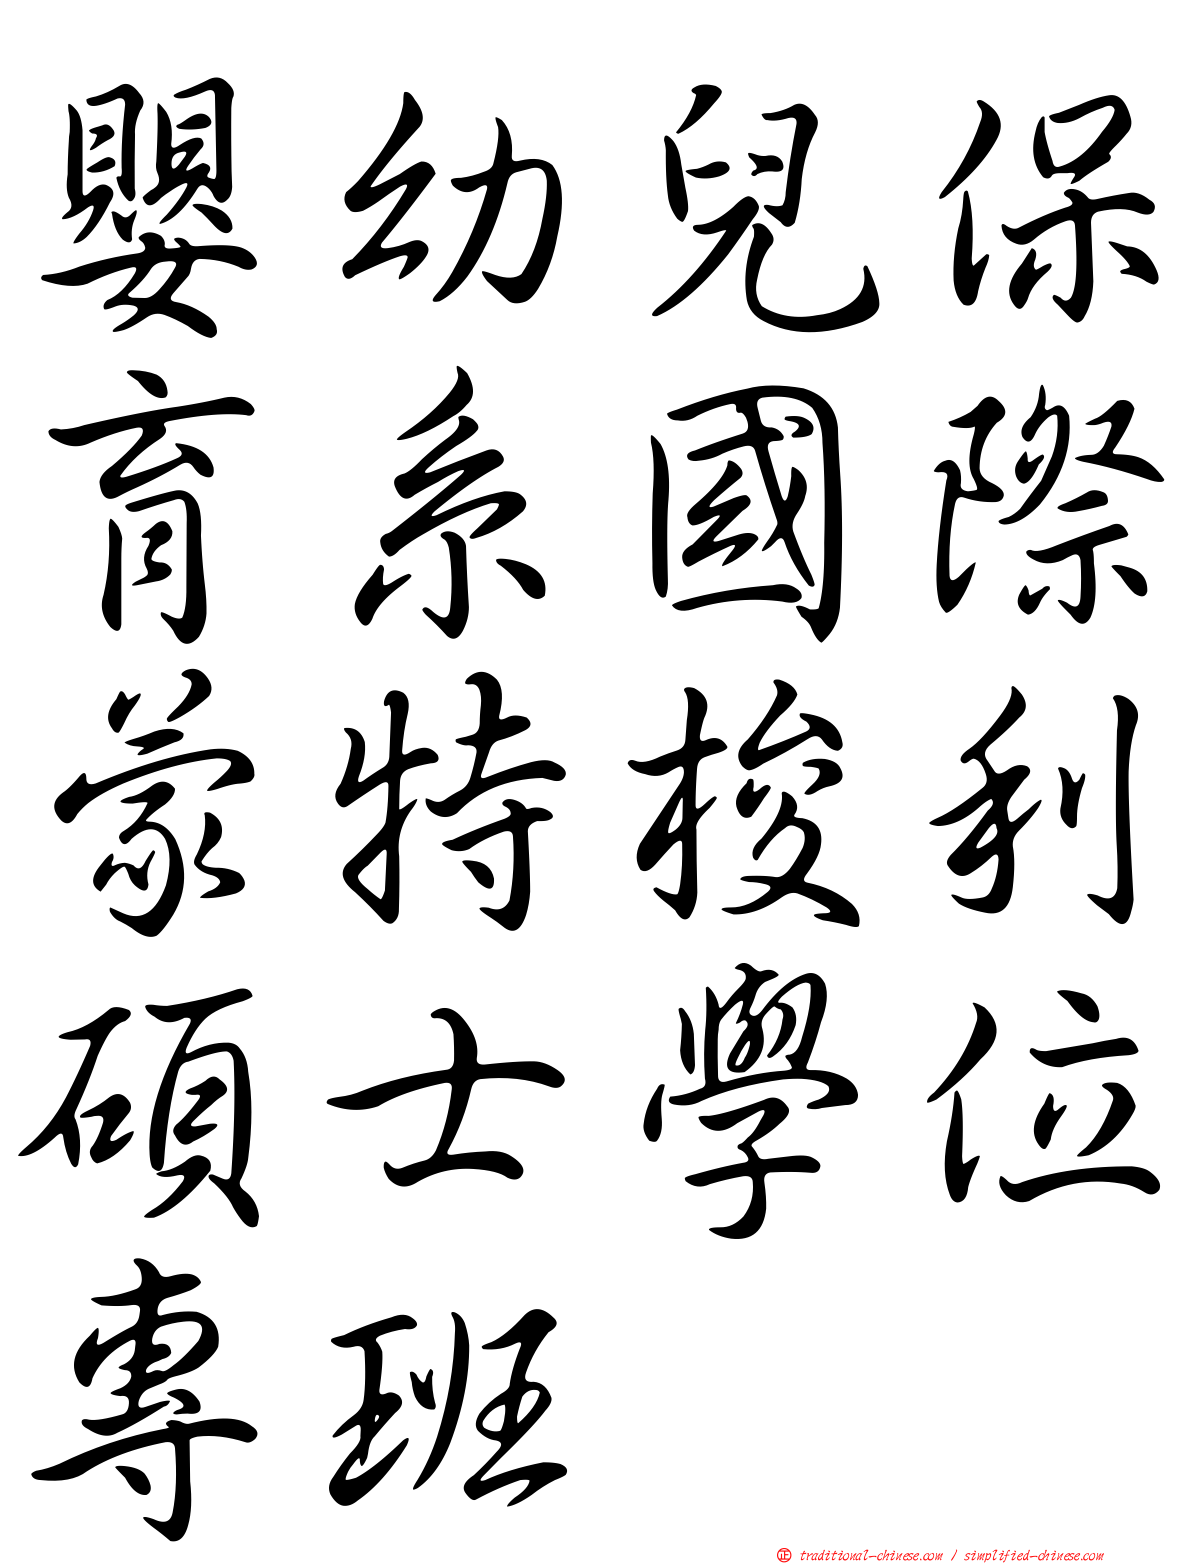 嬰幼兒保
育系國際
蒙特梭利
碩士學位
專班
正 traditional-chinese.com / simplified-chinese.com